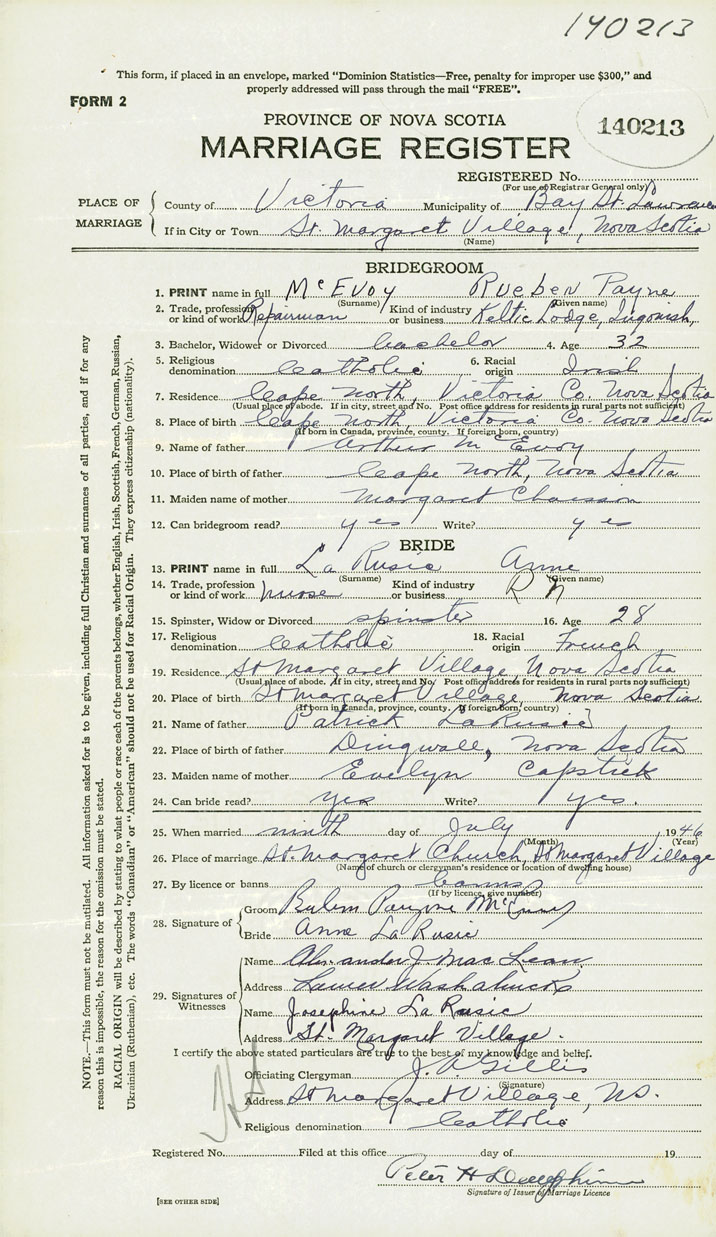 140213
This form, if placed in an envelope, marked "Dominion Statistics—Free, penalty for improper use $300," and
properly addressed will pass through the mail "FREE".
FORM 2
PROVINCE OF NOVA SCOTIA
140213
MARRIAGE REGISTER
REGISTERED No.
(For use of Registrar General only)
PLACE OF MARRIAGE
County of Victoria Municipality of Bay St. Lawrence
If in City or Town St. Margaret Village, Nova Scotia
(Name)
BRIDEGROOM
1. PRINT name in full McEvoy Rueben Payne
(Surname) (Given name)
2. Trade, profession or kind of work Repairman Kind of industry or business Keltic Lodge, Ingonish,
3. Bachelor, Widower or Divorced bachelor 4. Age 32
5. Religious denomination Catholic 6. Racial origin Irish
7. Residence Cape North, Victoria Co. Nova Scotia
(Usual place of abode. If in city, street and No. Post office address for residents in rural parts not sufficient)
8. Place of birth Cape North, Victoria Co. Nova Scotia
(If born in Canada, province, county. If foreign born, country)
9. Name of father Arthur McEvoy
10. Place of birth of father Cape North, Nova Scotia
11. Maiden name of mother Margaret Chaisson
12. Can bridegroom read? yes Write? yes
BRIDE
13. PRINT name in full La Rusic Anne
(Surname) (Given name)
14. Trade, profession or kind of work nurse Kind of industry or business R N
15. Spinster, Widow or Divorced spinster 16. Age 28
17. Religious denomination Catholic 18. Racial origin French
19. Residence St Margaret Village, Nova Scotia
(Usual place of abode. If in city, street and No. Post office address for residents in rural parts not sufficient)
20. Place of birth St Margaret Village, Nova Scotia
(If born in Canada, province, county. If foreign born, country)
21. Name of father Patrick LaRusic
22. Place of birth of father Dingwall, Nova Scotia
23. Maiden name of mother Evelyn Capstick
24. Can bride read? yes Write? yes.
25. When married ninth day of July 1946
(Month) (Year)
26. Place of marriage St. Margaret Church, St Margaret Village
(Name of church or clergyman's residence or location of dwelling house)
27. By licence or banns banns
(If by licence, give number)
28. Signature of Groom Payne McEvoy
Bride Anne La Rusic
29. Signatures of Witnesses
Name Alexander J. MacLean
Address Washabuck
Name Josephine La Rusic
Address St. Margaret Village.
I certify the above stated particulars are true to the best of my knowledge and belief.
Officiating Clergyman J. A. Gillis
(Signature)
Address St Margaret Village, NS.
Religious denomination Catholic
Registered No. Filed at this office day of 19
Peter H
Signature of Issuer of Marriage Licence
[SEE OTHER SIDE]
NOTE.—This form must not be mutilated. All information asked for is to be given, including full Christian and surnames of all parties, and if for any
reason this is impossible, the reason for the omission must be stated.
RACIAL ORIGIN will be described by stating to what people or race each of the parents belongs, whether English, Irish, Scottish, French, German, Russian,
Ukrainian (Ruthenian), etc. The words "Canadian" or "American" should not be used for Racial Origin. They express citizenship (nationality).